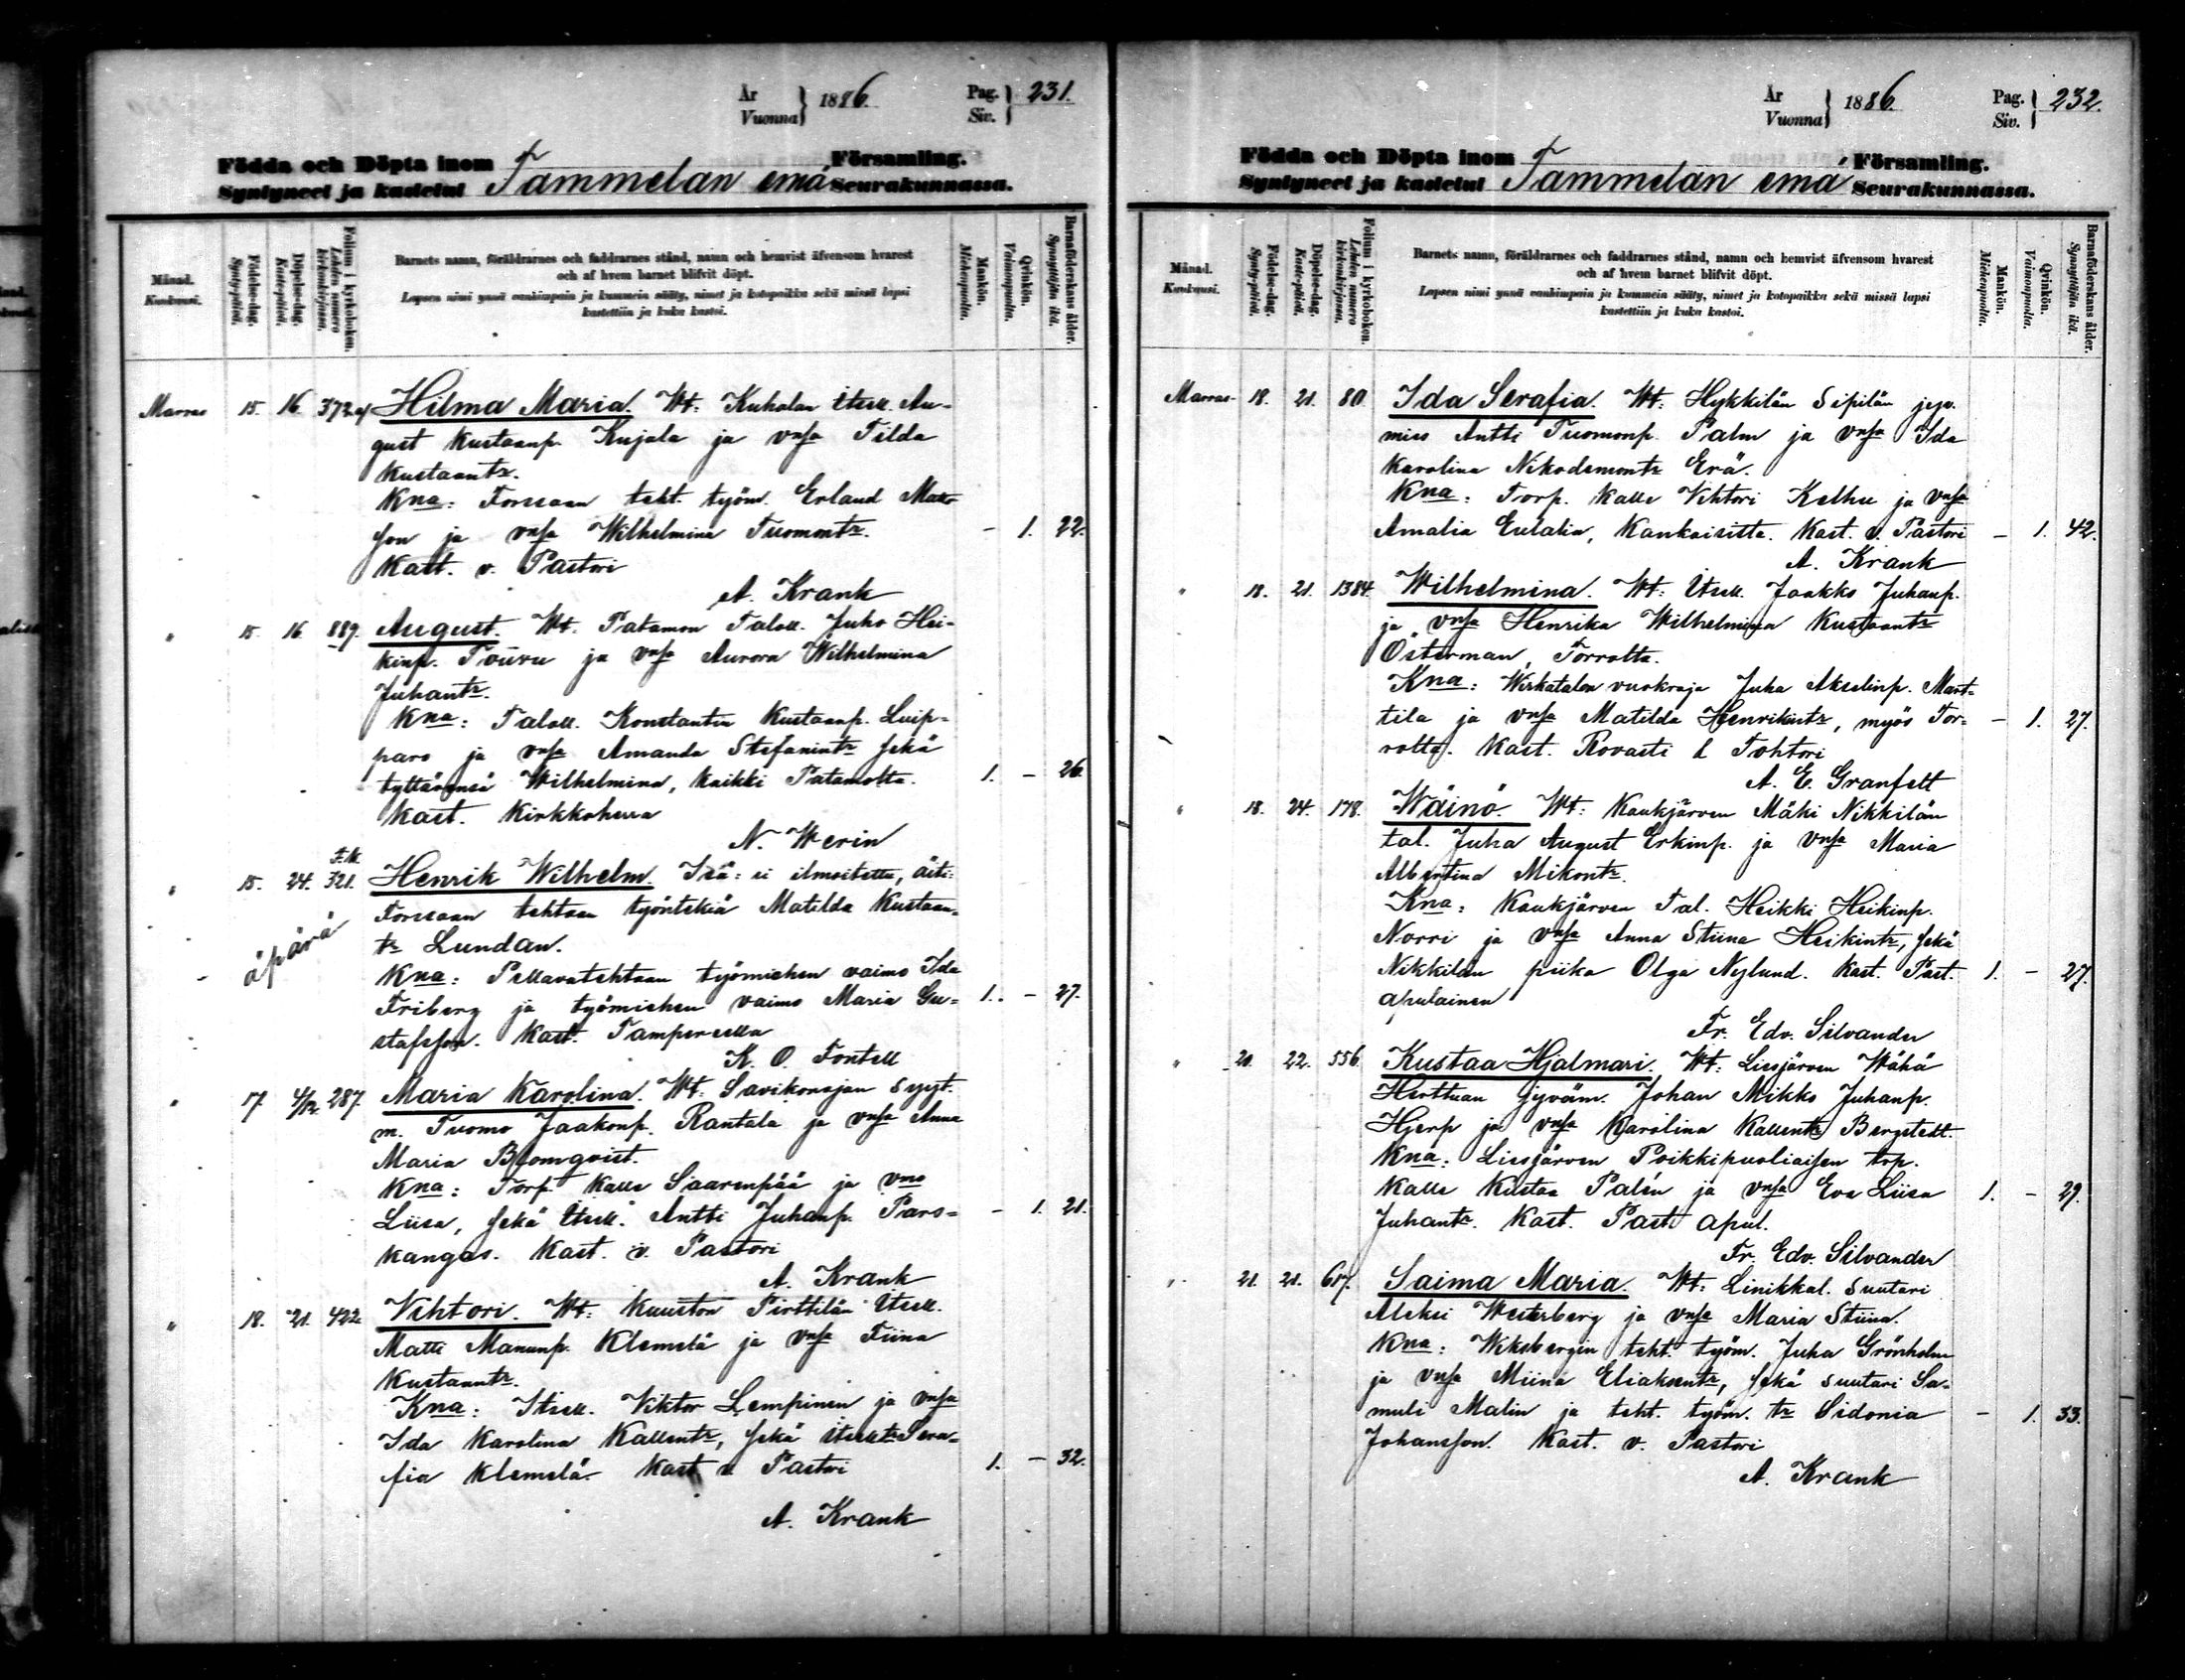 År
Vuonna } 1886. Pag.
Siv. } 231.
Födda och Döpta inom Församling.
Syntyneet ja kastetut Tammelan emä Seurakunnassa.
Månad.
Kuukausi.
Födelse-dag.
Syntypäivä.
Döpelse-dag.
Kaste-päivä.
Folium i kyrkoboken.
Lehden numero kirkonkirjassa.
Barnets namn, föräldrarnes och faddrarnes stånd, namn och hemvist äfvensom hvarest
och af hvem barnet blifvit döpt.
Lapsen nimi ynnä vanhimpain ja kummein sääty, nimet ja kotopaikka sekä missä lapsi
kastettiin ja kuka kastoi.
Mankön.
Miehenpuolta.
Qvinkön.
Vaimonpuolta.
Barnaföderskans ålder.
Synnyttäjän ikä.
Marras 15. 16. 372 Hilma Maria. Wt: Kuhalan Itsell. Au-
gust Kustaanp. Kujala ja vnsa Tilda
Kustaantr.
Kna: Forssaan teht. työm. Erland Matts-
son ja vnsa Wilhelmina Tuomontr. - 1. 22.
Kast. v. Pastori
A. Krank
" 15. 16. 889. August. Wt. Patamon Taloll. Juho Hei-
kinp. Touru ja vnsa Aurora Wilhelmina
Juhantr.
Kna: Taloll. Konstantin Kustaanp. Luip-
paro ja vnsa Amanda Stefanintr sekä
tyttärensä Wilhelmina, kaikki Patamolta. 1. - 26.
Kast. Kirkkoherra
N. Werin
" 15. 24. 321. Henrik Wilhelm. Isä: ei ilmoitettu, äiti:
Forssaan tehtaan työntekiä Matilda Kustaan-
tr Lundan.
äpärä
Kna: Pellavatehtaan työmiehen vaimo Ida
Friberg ja työmiehen vaimo Maria Gu- 1. - 27.
stafsson. Kast. Tampereella
K. O. Fontell
" 17. 4/12 287. Maria Karolina. Wt: Savikonojan syyt.
m. Tuomo Jaakonp. Rantala ja vnsa Anna
Maria Blomqvist.
Kna: Torp. Kalle Saarenpää ja vmo
Liisa, sekä Itsell. Antti Juhanp. Pars- - 1. 21.
kangas. Kast. v. Pastori
A. Krank
" 18. 21. 422 Vihtori. Wt: Kuuston Pirttilän Itsell.
Matti Manunp. Klemelä ja vnsa Tiina
Kustaantr.
Kna: Itsell. Viktor Lempinen ja vnsa
Ida Karolina Kallentr, sekä Itselltr Sera-
fia Klemelä. Kast v Pastori 1. - 32.
A. Krank
År
Vuonna } 1886. Pag.
Siv. } 232.
Födda och Döpta inom Församling.
Syntyneet ja kastetut Tammelan emä Seurakunnassa.
Månad.
Kuukausi.
Födelse-dag.
Syntypäivä.
Döpelse-dag.
Kaste-päivä.
Folium i kyrkoboken.
Lehden numero kirkonkirjassa.
Barnets namn, föräldrarnes och faddrarnes stånd, namn och hemvist äfvensom hvarest
och af hvem barnet blifvit döpt.
Lapsen nimi ynnä vanhimpain ja kummein sääty, nimet ja kotopaikka sekä missä lapsi
kastettiin ja kuka kastoi.
Mankön.
Miehenpuolta.
Qvinkön.
Vaimonpuolta.
Barnaföderskans ålder.
Synnyttäjän ikä.
Marras- 18. 21. 80. Ida Serafia. Wt: Hykkilän Sipilän jyv.
mies Antti Tuomonp. Palm ja vnsa Ida
Karolina Nikodemontr Erä.
Kna: Torp. Kalle Vihtori Kelhu ja vnsa
Amalia Eulalia, Kankaisista. Kast. v. Pastori - 1. 42.
A. Krank
" 18. 21. 1384. Wilhelmina. Wt: Itsell. Jaakko Juhanp.
ja vnsa Henrika Wilhelmina Kustaantr
Österman, Torrolta.
Kna: Wirkatalon vuokraja Juha Akselinp. Mart-
tila ja vnsa Matilda Henrikintr, myös Tor- - 1. 27.
rolta. Kast. Rovasti & Tohtori
A. E. Granfelt
" 18. 24. 178. Wäinö. Wt: Kaukjärven Mäki Nikkilän
tal. Juha August Erkinp. ja vnsa Maria
Albertina Mikontr.
Kna: Kaukjärven Tal. Heikki Heikinp.
Norri ja vnsa Anna Stiina Heikintr, sekä
Nikkilän piika Olga Nylund. Kast. Past. 1. - 27.
apulainen
Fr. Edv. Silvander
" 20. 22. 556. Kustaa Hjalmari. Wt: Liesjärven Wähä
Herttuan jyväm. Johan Mikko Juhanp.
Hjerp ja vnsa Karolina Kallentr Bergstedt.
Kna: Liesjärven Poikkipuoliaisen trp.
Kalle Kustaa Palén ja vnsa Eva Liisa 1. - 29.
Juhantr. Kast. Past. apul.
Fr. Edv. Silvander
" 21. 21. 617. Saima Maria. Wt: Linikkal. Suutari
Aleksi Westerberg ja vnsa Maria Stiina.
Kna: Wiksbergin teht. työm. Juha Grönholm
ja vnsa Miina Eliaksentr, sekä suutari Sa-
muli Malin ja teht. työm. tr Sidonia - 1. 33.
Johansson. Kast. v. Pastori
A. Krank